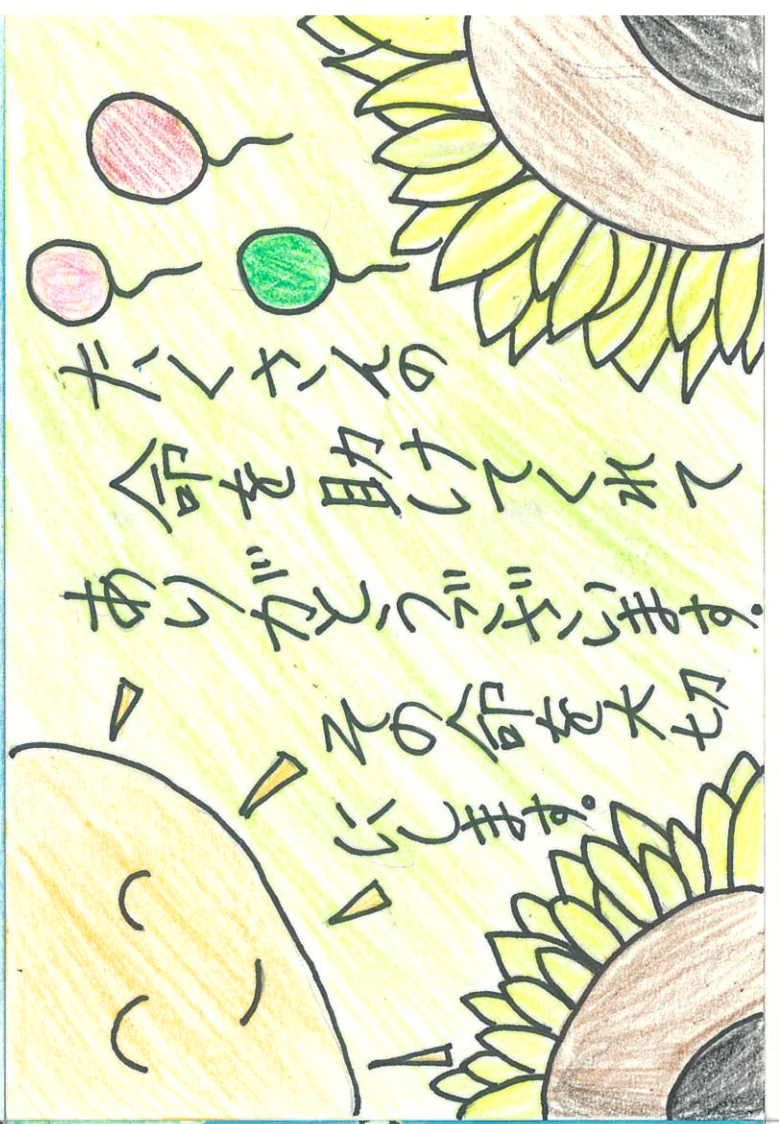 たくさんの
命を助けてくれて
ありがとうございます。
その命を大切
にします。